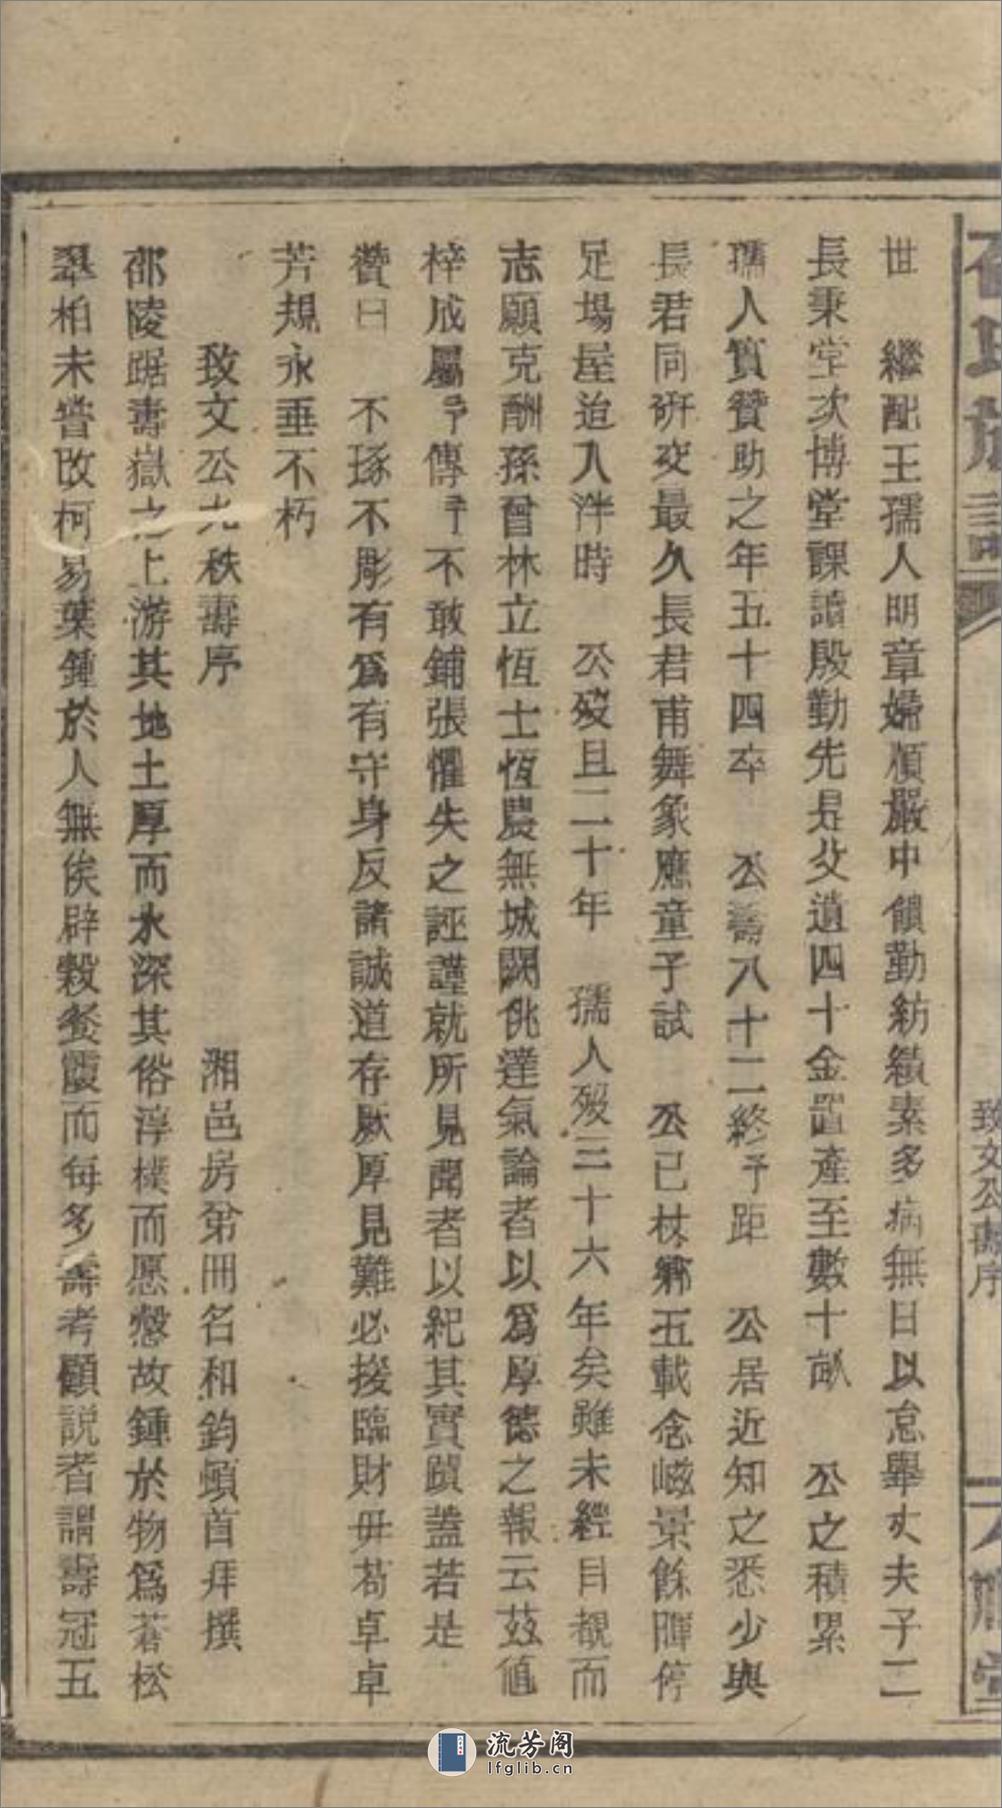 氏族譜
致文公壽序
世　繼配王孺人明章婦順嚴中饋勤紡績素多病無日以怠舉丈夫子二
長秉堂次博堂課讀殷勤先是父遺四十金置產至數十畝　公之積累
孺人實贊助之年五十四卒　公壽八十二終予距　公居近知之悉少與
長君同硏交最久長君甫舞象應童子試　公已杖鄕五載念崦景餘暉停
足場屋迨入泮時　公歿且二十年　孺人歿三十六年矣雖未經目覩而
志願克酬孫曾林立恆士恆農無城闕佻達氣論者以爲厚德之報云茲値
梓成屬予傳予不敢鋪張懼失之誣謹就所見聞者以紀其實蹟蓋若是
贊曰　不琢不彫有爲有守身反諸誠道存厥厚見難必援臨財毋苟卓卓
芳規永垂不朽
致文公九秩壽序　湘邑房弟冊名和鈞頓首拜撰
邵陵踞壽嶽之上游其地土厚而水深其俗淳樸而愿慤故鍾於物爲蒼松
翠柏未嘗改柯易葉鍾於人無俟辟穀餐霞而每多壽考顧說者謂壽冠五